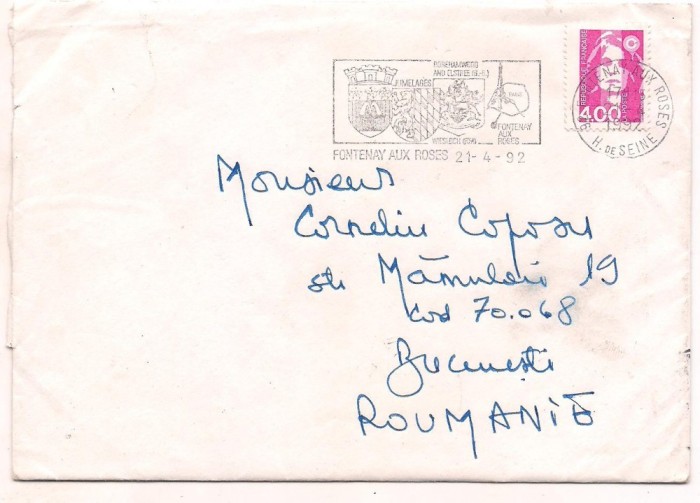 BOREHAMWOOD
AND ELSTREE (G.B.)
JUMELAGES
PARIS
WIESLOCH (RFA)
FONTENAY
AUX
ROSES
FONTENAY AUX ROSES 21-4-92
RÉPUBLIQUE FRANÇAISE
4,00
LA POSTE
FONTENAY AUX ROSES
1992
H. DE SEINE
Monsieur
Corneliu Coposu
str Mămulari 19
cod 70.068
București
ROUMANIE